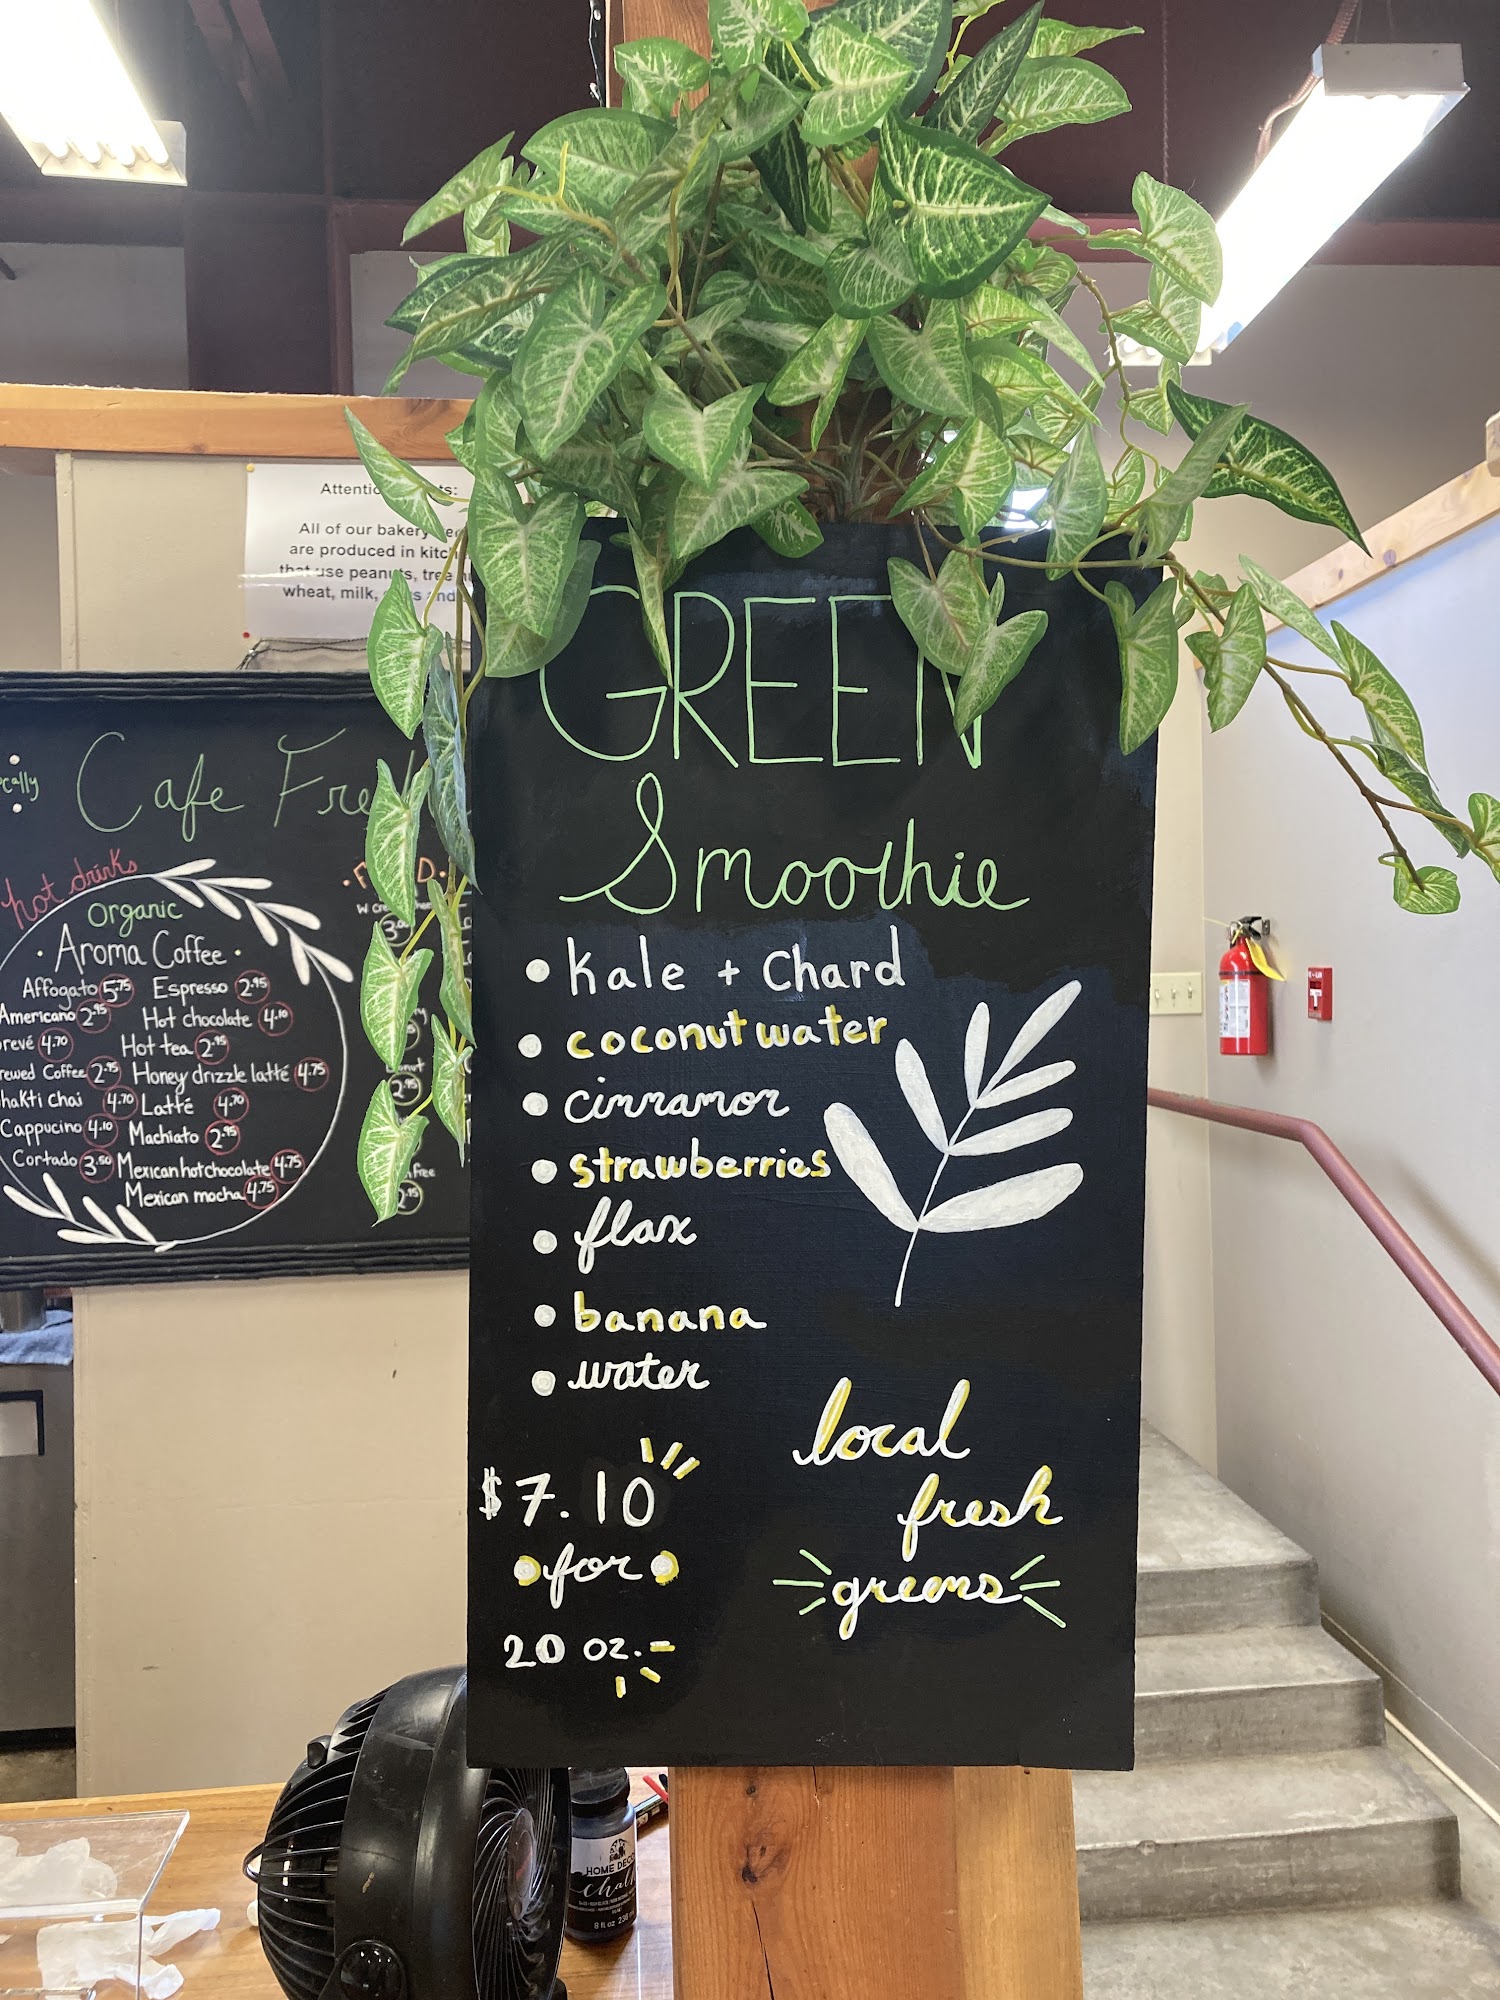 Attentio ts:
All of our bakery
are produced in kitc
that use peanuts, tree
wheat, milk, and
cally
Cafe Fre
hot drinks
Organic
Aroma Coffee
Affogato 5.75 Espresso 2.95
Americano 2.95 Hot chocolate 4.10
revé 4.70 Hot tea 2.95
rewed Coffee 2.95 Honey drizzle latté 4.75
hakti chai 4.70 Latté 4.70
Cappucino 4.10 Machiato 2.95
Cortado 3.50 Mexican hot chocolate 4.75
Mexican mocha 4.75
GREEN
Smoothie
• Kale + Chard
• coconut water
• cinnamon
• strawberries
• flax
• banana
• water
$7.10
• for •
20 oz.
local
fresh
greens
HOME DECO
chal
8 fl oz 236 m